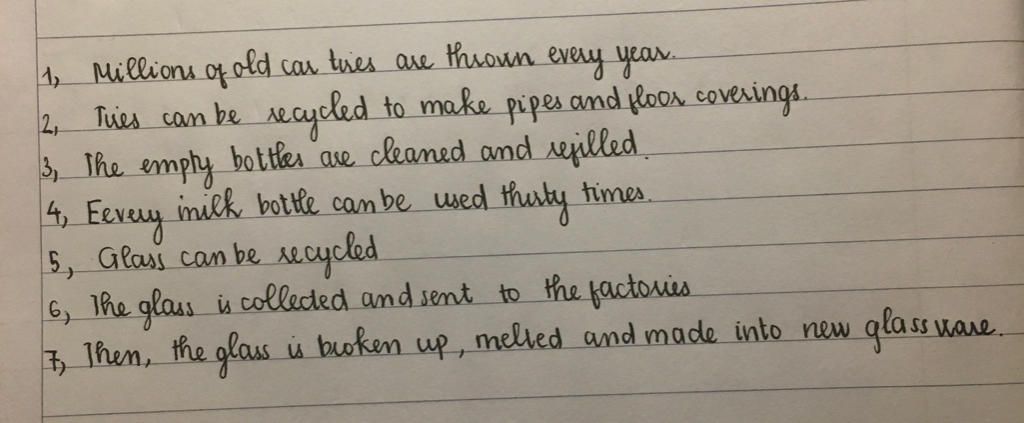 1, Millions of old car tires are thrown every year.
2, Tires can be recycled to make pipes and floor coverings.
3, The empty bottles are cleaned and refilled.
4, Eevery milk bottle can be used thirty times.
5, Glass can be recycled
6, The glass is collected and sent to the factories
7, Then, the glass is broken up, melted and made into new glass ware.